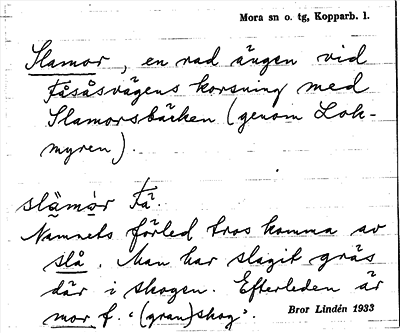 Mora sn o. tg, Kopparb. l.
Slamor, en rad ängen vid
Fåsåsvägens korsning med
Slamorsbäcken (genom Lok-
myren).
slämȯr Fä.
Namnets förled tros komma av
slå. Man har slagit gräs
där i skogen. Efterleden är
mor f. '(gran)skog'.
Bror Lindén 1933